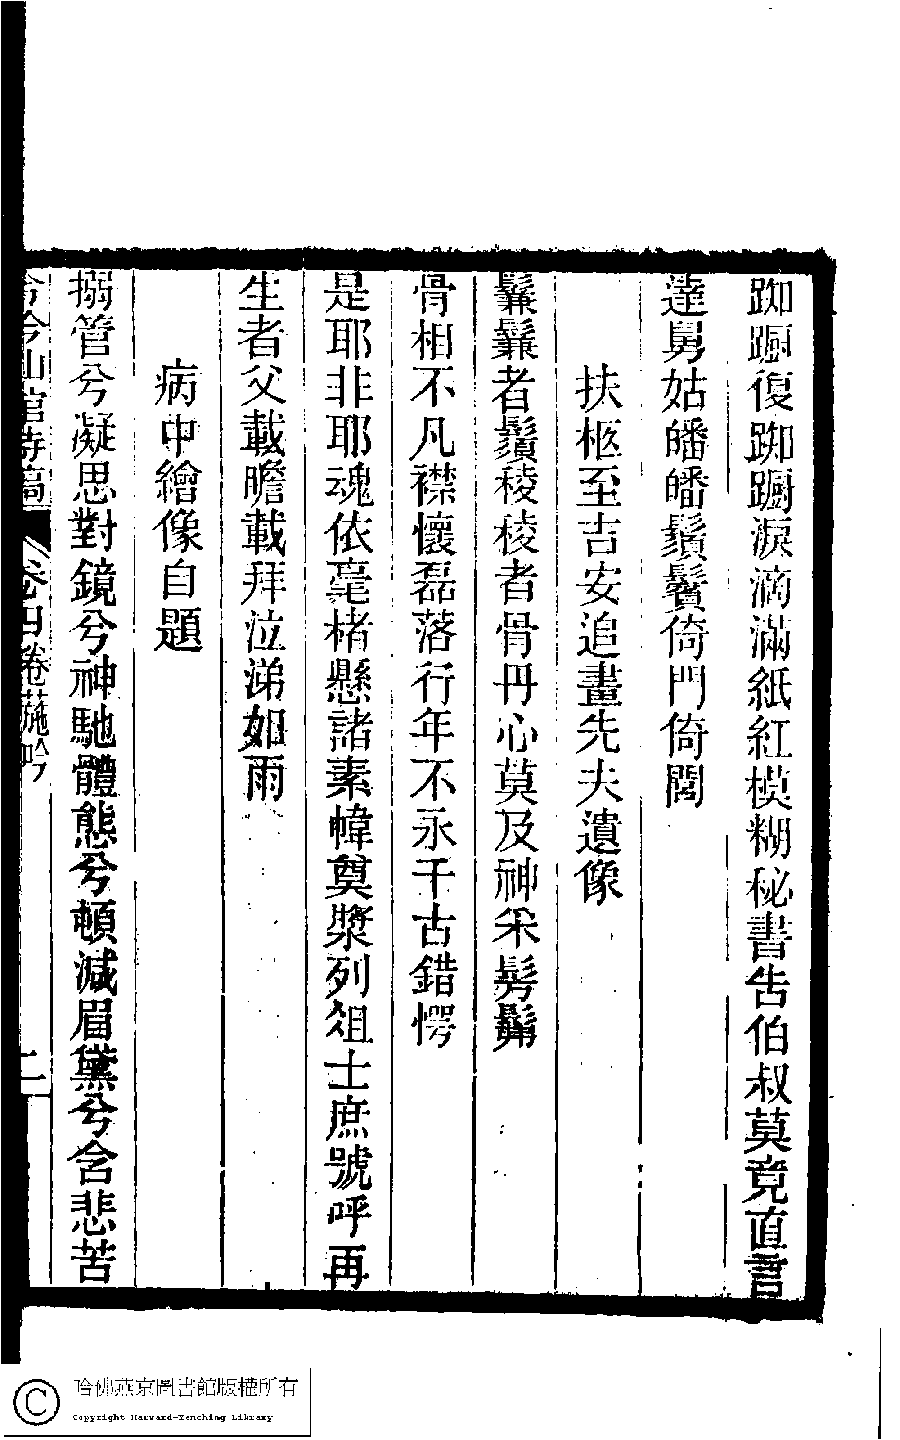 踟躕復踟躕淚滴滿紙紅模糊秘書告伯叔莫竟直言
達舅姑皤皤鬚鬢倚門倚閭
扶柩至吉安追畫先夫遺像
鬑鬑者鬚稜稜者骨丹心莫及神采髣髴
骨相不凡襟懷磊落行年不永千古錯愕
是耶非耶魂依毫楮懸諸素幃奠漿列俎士庶號呼再
生者父載瞻載拜泣涕如雨
病中繪像自題
搦管兮凝思對鏡兮神馳體態兮頓減眉黛兮含悲苦
冷吟山館詩稿 卷四卷葹吟 二
哈佛燕京圖書館版權所有
Copyright Harvard-Yenching Library